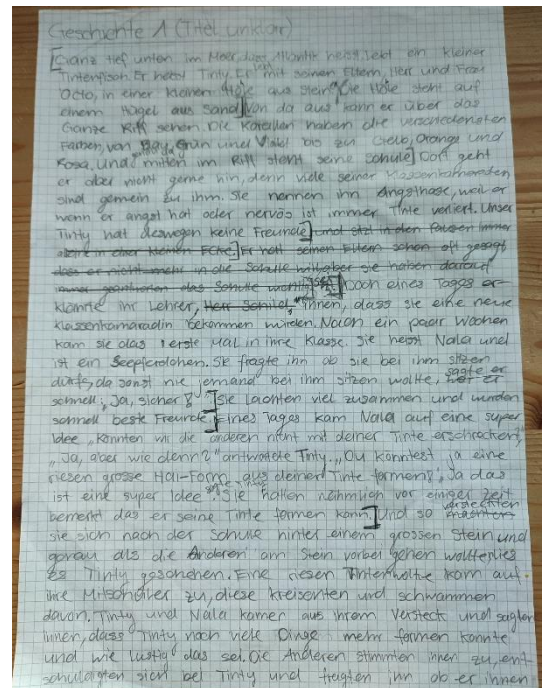 Geschichte 1 (Titel unklar)
[Ganz tief unten im Meer, das Atlantik heisst lebt ein kleiner
Tintenfisch. Er heisst Tinty. Er lebt mit seinen Eltern, Herr und Frau
Octo, in einer kleinen Höle aus Stein. Die Höle steht auf
einem Hügel aus Sand.] Von da aus kann er über das
Ganze Riff sehen. Die Korallen haben die verschiedensten
Farben, von Grün und Violet bis zu Gelb, Orange und
Rosa. Und mitten im Riff steht seine Schule.] Dort geht
er aber nicht gerne hin, denn viele seiner Klassenkammeraden
sind gemein zu ihm. Sie nennen ihn Angsthase, weil er
wenn er angst hat oder nervös ist immer Tinte verliert. Unser
Tinty hat deswegen keine Freunde.] und sitzt in den Pausen immer
alleine in einer kleinen Ecke.] Er hatt seinen Eltern schon oft gesagt
das er nicht mehr in die Schulle will, aber sie haben darauf
immer geantwortet das Schulle wichtig Doch eines Tages er-
klärte ihr Lehrer, Herr ihnen, dass sie eine neue
Klassenkamaradin bekommen würden. Nach ein paar Wochen
kam sie das 1 erste Mal in ihre Klasse. Sie heisst Nala und
ist ein Seepferdchen. Sie fragte ihn ob sie bei ihm sitzen
dürfe, da sonst nie jemand bei ihm sitzen wollte, sagte er
schnell: „Ja, sicher!" ] Sie lachten viel zusammen und wurden
schnell beste Freunde.] Eines Tages kam Nala auf eine super
Idee „Könnten wir die anderen nicht mit deiner Tinte erschrecken?"
„Ja, aber wie denn?" antwortete Tinty. „Du könntest ja eine
riesen grosse Hai-Form aus deiner Tinte formen!" „Ja das
ist eine super Idee" sagte Tinty. Sie hatten nähmlich vor einiger Zeit
bemerkt das er seine Tinte formen kann.] Und so versteckten
sie sich nach der Schule hinter einem grossen Stein und
genau als die Anderen am Stein vorbei gehen wollten lies
es Tinty geschehen. Eine riesen Tintenwolke kam auf
ihre Mitschüler zu, diese kreischten und schwammen
davon. Tinty und Nala kamen aus ihrem Versteck und sagten
ihnen, dass Tinty noch viele Dinge mehr formen könnte
und wie lustig das sei. Die Anderen stimmten ihnen zu, ent-
schuldigten sich bei Tinty und fragten ihn ob er ihnen